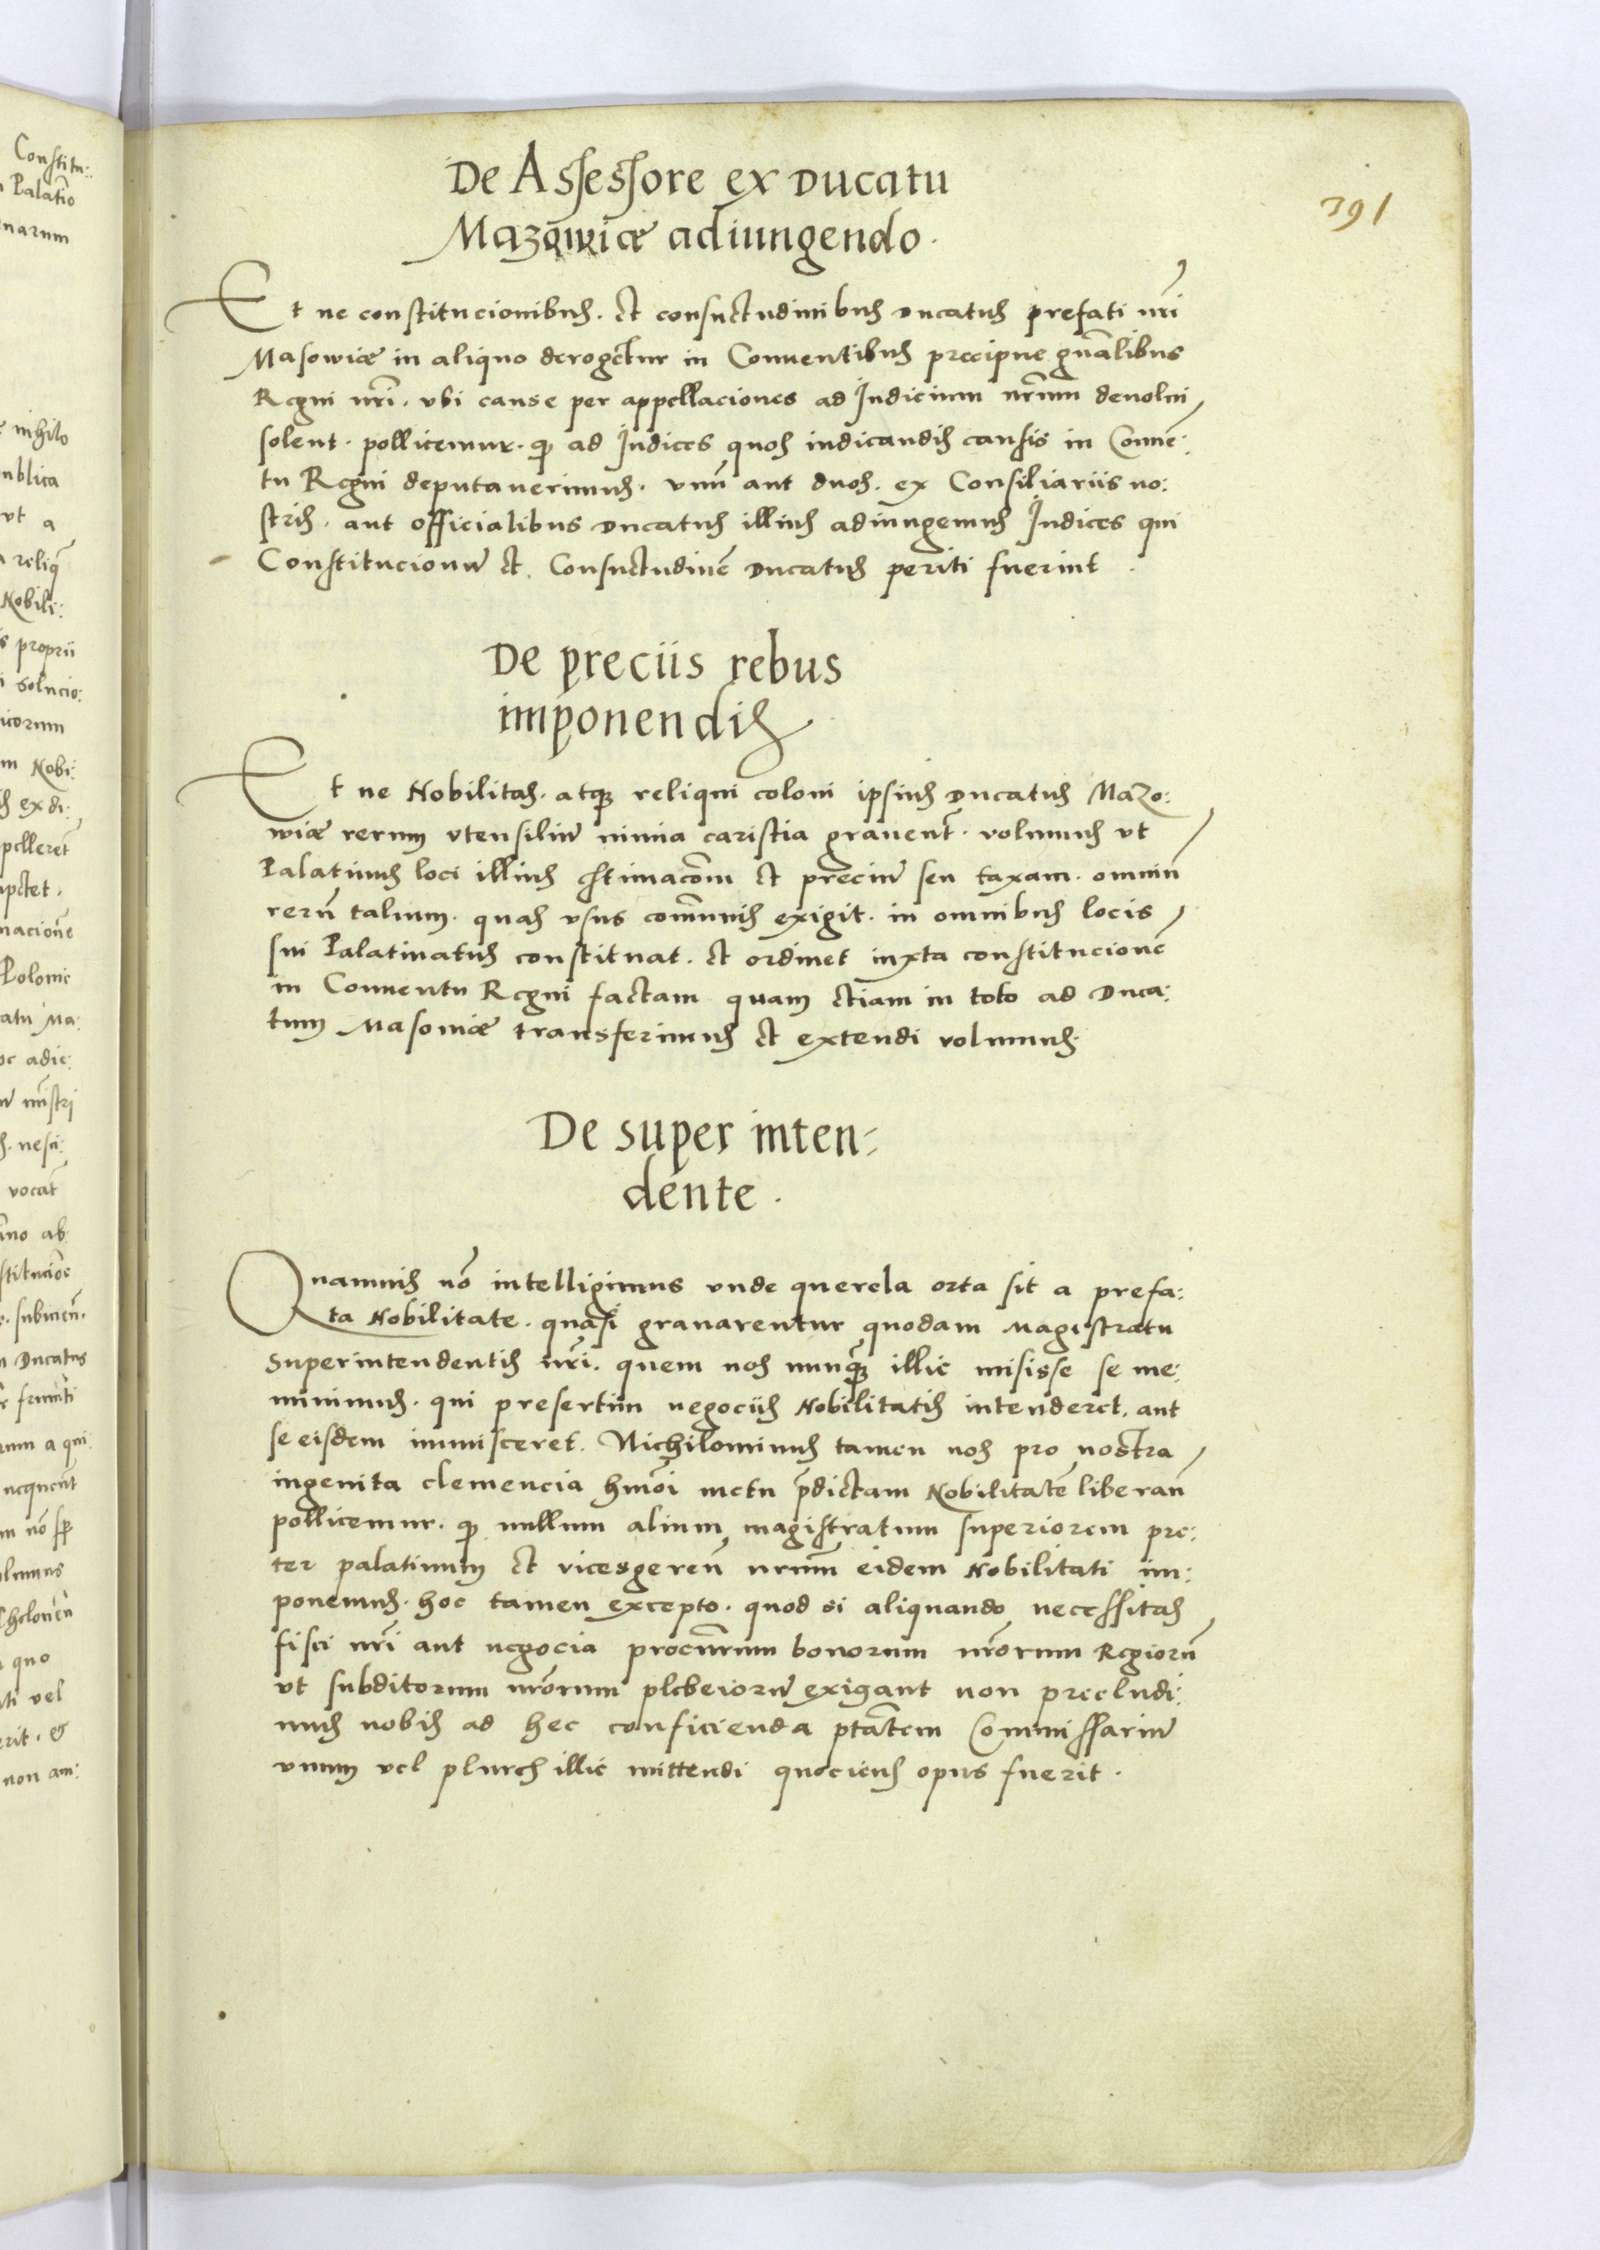 391
De Assessore ex Ducatu
Mazowiæ adiungendo.
Et ne constitucionibus. et consuetudinibus Ducatus prefati nr̃i
Masowiæ in aliquo derogetur in Conuentibus precipue gñalibus
Regni nr̃i. vbi cause per appellaciones ad Judicium nr̃um deuolui
solent. pollicemur. q̃ ad Judices quos iudicandis causis in Conuẽ:
tu Regni deputauerimus. vnũ aut duos. ex Consiliariis no:
stris. aut officialibus Ducatus illius adiungemus Judices qui
Constitucionũ et. Consuetudinẽ Ducatus periti fuerint.
De preciis rebus
imponendis
Et ne Nobilitas. atq3 reliqui coloni ipsius Ducatus Mazo:
wiæ rerum vtensiliũ nimia caristia grauent̃. volumus vt
Palatinus loci illius estimacõm et preciũ seu taxam. omniũ
rerũ talium. quas vsus cõmunis exigit. in omnibus locis
sui Palatinatus constituat. et ordinet iuxta constitucionẽ
in Conuentu Regni factam quam etiam in toto ad Duca:
tum Masoviæ transferimus et extendi volumus.
De super inten=
dente.
Quamuis nõ intelligimus vnde querela orta sit a prefa:
ta Nobilitate. quasi grauarentur quodam Magistratu
Superintendentis nr̃i. quem nos nunq̃3 illic misisse se me:
minimus. qui presertim negociis Nobilitatis intenderet. aut
se eisdem immisceret. Nichilominus tamen nos pro nostra
ingenita clemencia hmõi metu p̃dictam Nobilitatẽ liberañ
pollicemur. q̃ nullum alium magistratum superiorem pre:
ter palatinum et vicesgereñ nr̃um eidem Nobilitati im:
ponemus. hoc tamen excepto. quod si aliquando necessitas
fisci nr̃i aut negocia procur̃um bonorum nr̃orum Regiorũ
vt subditorum nr̃orum plebeiorũ exigant non precludi:
mus nobis ad hec conficienda ptãtem Commissariũ
vnum vel plures illic mittendi quociens opus fuerit.